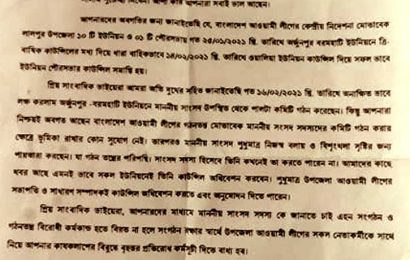 আপনারা সবাই ভাল আছেন।
আপনারদের অবগতির জন্য জানাইতেছি যে, বাংলাদেশ আওয়ামী লীগের কেন্দ্রীয় নির্দেশনা মোতাবেক
লালপুর উপজেলা ১০ টি ইউনিয়ন ও ০১ টি পৌরসভায় গত ২৫/০১/২০২১ খ্রি. তারিখে অর্জুনপুর বরমহাটি ইউনিয়নে ত্রি-
বার্ষিক কাউন্সিলের মধ্য দিয়ে ধারা বাহিকভাবে ১৪/০২/২০২১ খ্রি. তারিখে ওয়ালিয়া ইউনিয়ন কাউন্সিল দিয়ে সফল ভাবে
ইউনিয়ন পৌরসভার কাউন্সিল সমাপ্তি হয়।
প্রিয় সাংবাদিক ভাইয়েরা আমরা অতি দুঃখের সহিত জানাইতেছি গত ১৬/০২/২০২১ খ্রি. তারিখে অনাকাঙ্খিত ভাবে
লক্ষ করলাম অর্জুনপুর -বরমহাটি ইউনিয়নে মাননীয় সাংসদ উপস্থিত থেকে পাল্টা কমিটি গঠন করেছেন। কিন্তু আপনারা
নিশ্চয়ই অবগত আছেন বাংলাদেশ আওয়ামী লীগের গঠনতন্ত্র মোতাবেক মাননীয় সাংসদ সদস্যদের কমিটি গঠন করার
ক্ষেত্রে ভূমিকা রাখার কোন সুযোগ নেই। তারপরও মাননীয় সাংসদ শুধুমাত্র নিজস্ব বলয় ও বিশৃংখলা সৃষ্টির জন্য
পায়তারা করছেন। যা গঠন তন্ত্রের পরিপন্থি। সাংসদ সদস্য হিসেবে তিনি কখনই তা করতে পারেন না। আমাদের কাছে
খবর আছে এমনই ভাবে সকল ইউনিয়নেই তিনি কাউন্সিল অধিবেশন করছেন। শুধুমাত্র উপজেলা আওয়ামী লীগের
সভাপতি ও সাধারণ সম্পাদকই কাউন্সিল অধিবেশন করতে এবং অনুমোদন দিতে পারেন।
প্রিয় সাংবাদিক ভাইয়েরা, আপনারদের মাধ্যমে মাননীয় সাংসদ সদস্য কে জানাতে চাই এহন সংগঠন ও
গঠনতন্ত্র বিরোধী কর্মকান্ড হতে বিরত না হলে সংগঠন রক্ষার স্বার্থে উপজেলা আওয়ামী লীগের সকল নেতাকর্মীকে সাথে
নিয়ে আপনার কার্যকলাপের বিরুদ্ধে বৃহত্তর প্রতিরোধ কর্মসূচী দিতে বাধ্য হব।